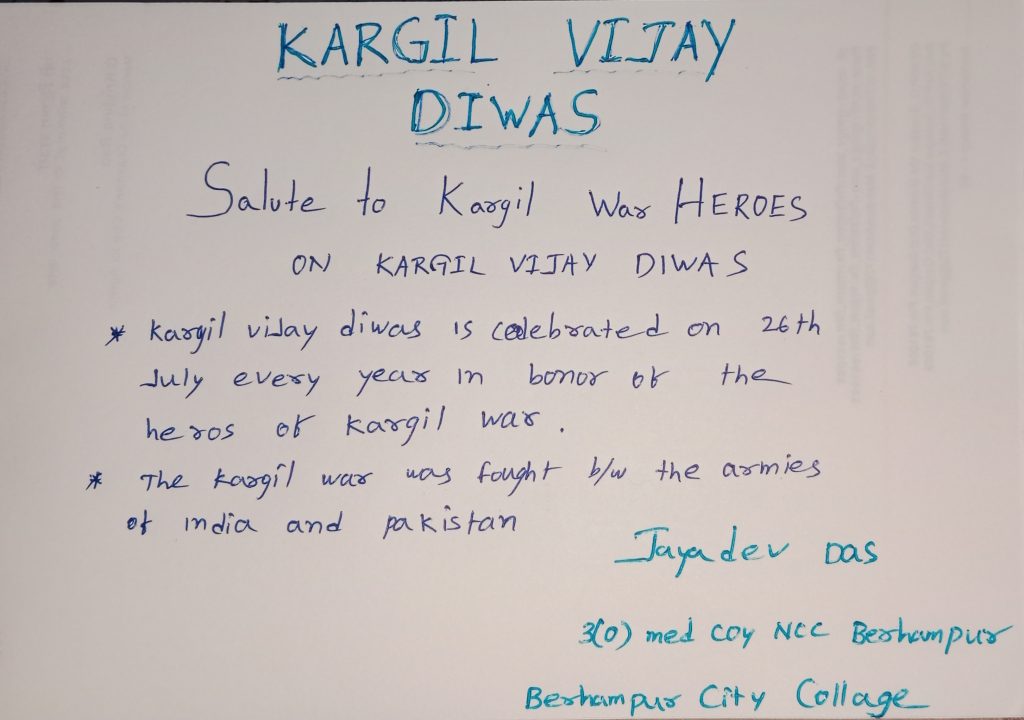 KARGIL VIJAY
DIWAS
Salute to Kargil War HEROES
ON KARGIL VIJAY DIWAS
* Kargil viJay diwas is celebrated on 26th
July every year in bonor of the
heros of Kargil war .
* The Kargil war was fought b/w the armies
of india and pakistan
Jayadev DAS
3(0) med coy NCC Berhampur
Berhampur City Collage